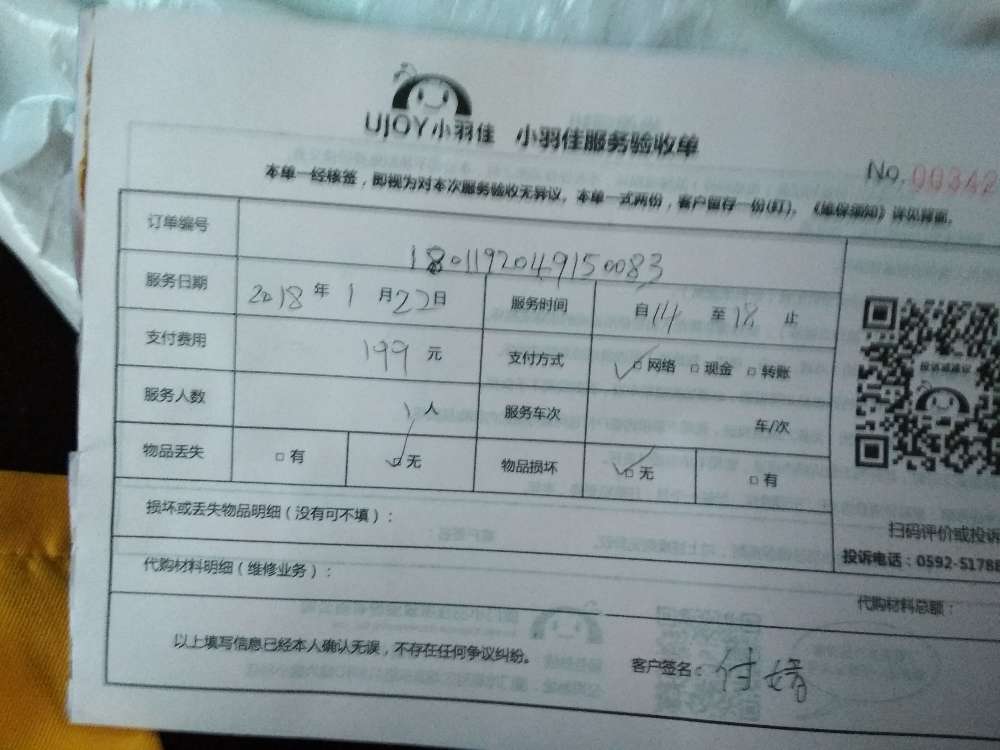 UJOY小羽佳 小羽佳服务验收单
No. 00342
本单一经核签，即视为对本次服务验收无异议。本单一式两份，客户留存一份(钉)。《维保须知》详见背面。
订单编号 1801192049150083
服务日期 2018年1月22日 服务时间 自14至18止
支付费用 199元 支付方式 ☑网络 □现金 □转账
服务人数 1人 服务车次 车/次
物品丢失 □有 ☑无 物品损坏 ☑无 □有
损坏或丢失物品明细（没有可不填）：
扫码评价或投诉
投诉电话：0592-51788
代购材料明细（维修业务）：
代购材料总额：
以上填写信息已经本人确认无误，不存在任何争议纠纷。
客户签名：付婧